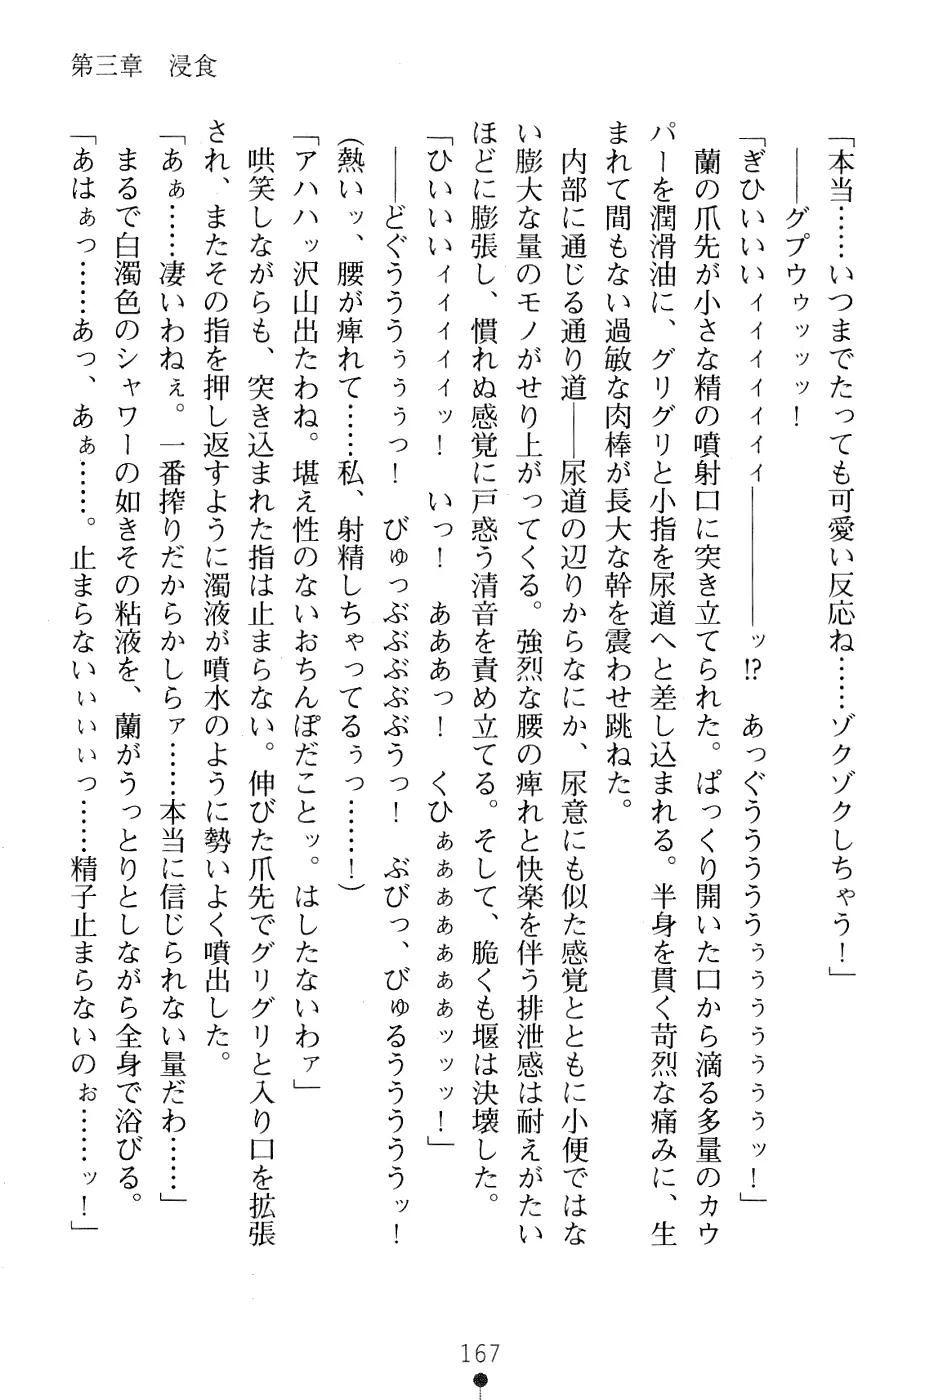 第三章　浸食
「本当……いつまでたっても可愛い反応ね……ゾクゾクしちゃう！」
――グプウゥッッッ！
「ぎひいいいィィィィィィ――――――ッ!?　あっぐうううううぅぅぅぅぅぅッ！」
蘭の爪先が小さな精の噴射口に突き立てられた。ぱっくり開いた口から滴る多量のカウ
パーを潤滑油に、グリグリと小指を尿道へと差し込まれる。半身を貫く苛烈な痛みに、生
まれて間もない過敏な肉棒が長大な幹を震わせ跳ねた。
内部に通じる通り道――尿道の辺りからなにか、尿意にも似た感覚とともに小便ではな
い膨大な量のモノがせり上がってくる。強烈な腰の痺れと快楽を伴う排泄感は耐えがたい
ほどに膨張し、慣れぬ感覚に戸惑う清音を責め立てる。そして、脆くも堰は決壊した。
「ひいいいィィィィッ！　いっ！　あああっ！　くひぁぁぁぁぁぁぁッッッ！」
――どぐうううぅぅぅっ！　びゅっぶぶぶぶぶうっ！　ぶびっ、びゅるううううぅッ！
（熱いッ、腰が痺れて……私、射精しちゃってるぅっ……！）
「アハハッ沢山出たわね。堪え性のないおちんぽだことッ。はしたないわァ」
哄笑しながらも、突き込まれた指は止まらない。伸びた爪先でグリグリと入り口を拡張
され、またその指を押し返すように濁液が噴水のように勢いよく噴出した。
「あぁ……凄いわねぇ。一番搾りだからかしらァ……本当に信じられない量だわ……」
まるで白濁色のシャワーの如きその粘液を、蘭がうっとりとしながら全身で浴びる。
「あはぁっ……あっ、あぁ……。止まらないぃぃぃっ……精子止まらないのぉ……ッ！」
167